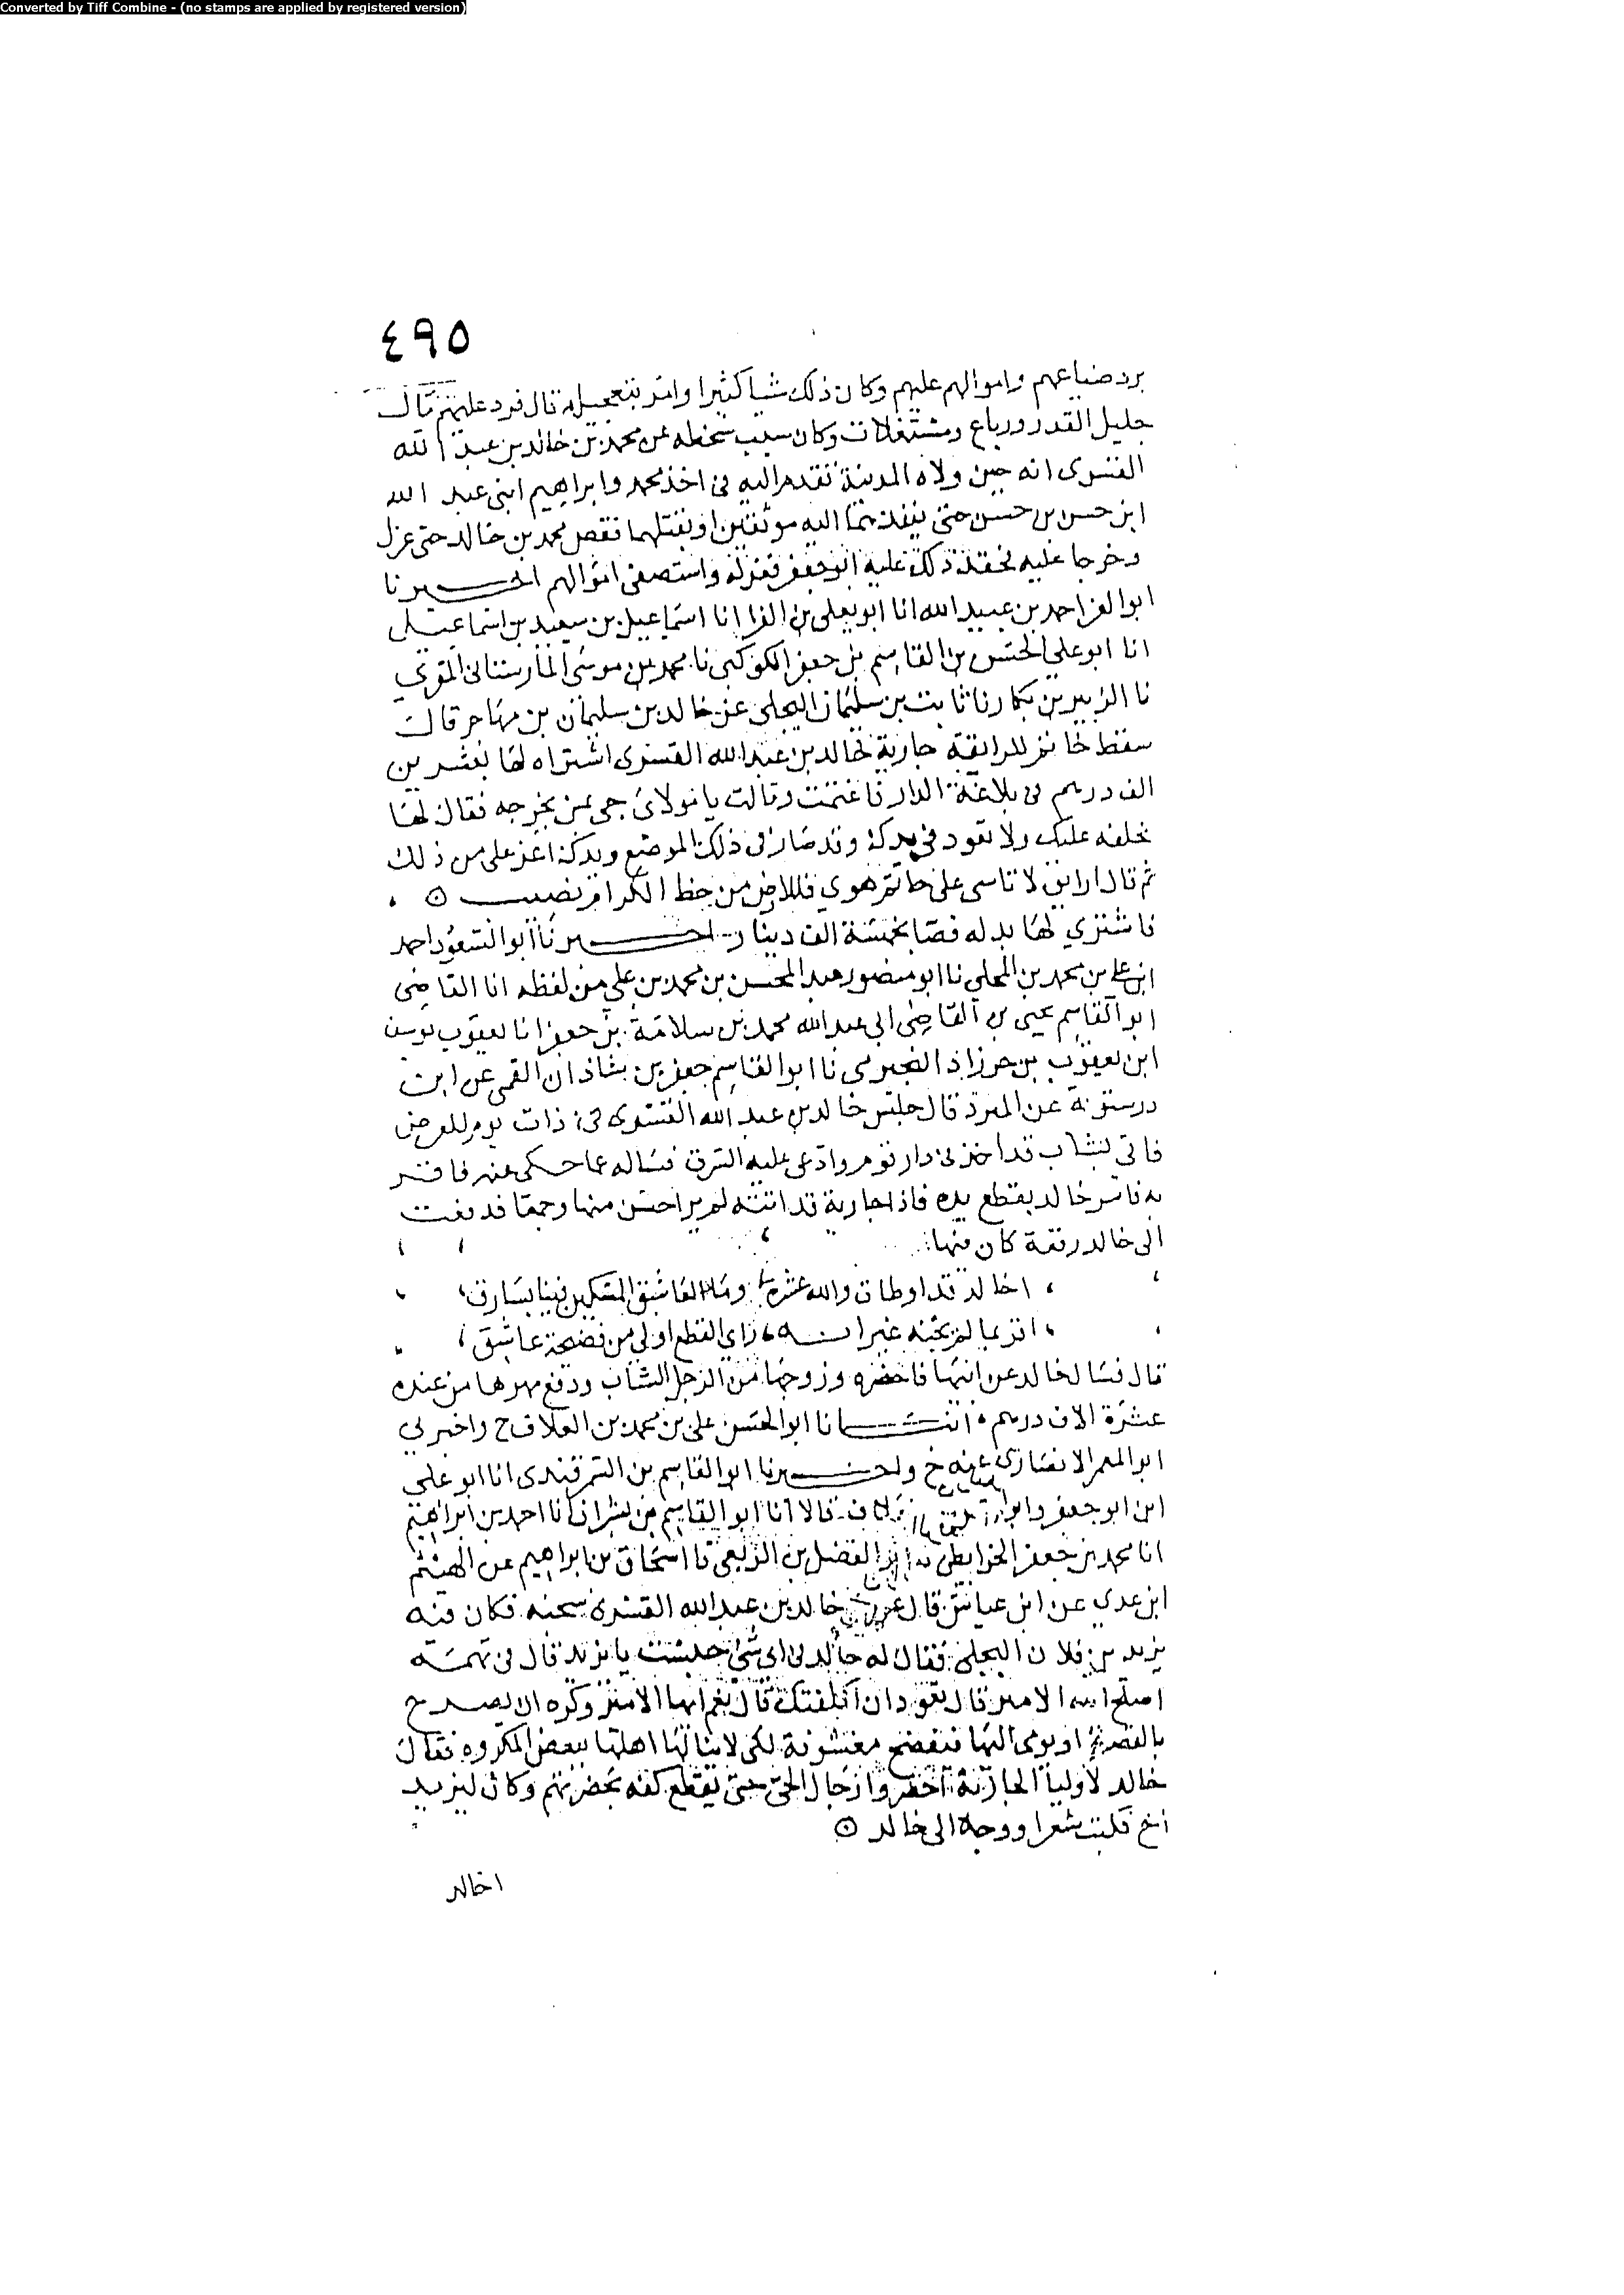 Converted by Tiff Combine - (no stamps are applied by registered version)
٤٩٥
برد ضياعهم واموالهم عليهم وكان ذلك شيا كثيرا وامر بتعجيله قال فرد عليهم مال
جليل القدر ورباع ومشتغلات وكان سبب سخطه عن محمد بن خالد بن عبد الله
القسرى انه حين ولاه المدينة تقدم اليه فى اخذ محمد وابراهيم ابنى عبد الله
ابن حسن بن حسن حتى ينفذهما اليه موثقين او يقتلهما فقصر محمد بن خالد حتى عزل
وخرجا عليه فحقد ذلك عليه ابو جعفر فعزله واستصفى اموالهم اخبرنا
ابو العز احمد بن عبيد الله انا ابو يعلى بن الفرا انا اسماعيل بن سعيد بن اسماعيل
انا ابو على الحسين بن القاسم بن جعفر الكوكبى نا محمد بن موسى المارستانى المقرى
نا الزبير بن بكار نا ثابت بن سليمان البجلى عن خالد بن سليمان بن مهاجر قال
سقط خاتم للرايقة جارية لخالد بن عبد الله القسرى اشتراه لها بعشرين
الف درهم فى بلاعة الدار فاغتمت وقالت يا مولاى جى بمن يخرجه فقال لها
نخلفه عليك ولا يعود فى يدك وقد صار فى ذلك الموضع ويدك اعز على من ذلك
ثم قال ارايق لا تاسى على خاتم هوى فللارض من حظ الكرام نصيب ⊙
فاشترى لها بدله فصا بخمسة الف دينار اخبرنا ابو السعود احمد
ابن على بن محمد بن المجلى نا ابو منصور عبد المحسن بن محمد بن على من لفظه انا القاضى
ابو القاسم يحيى بن القاضى ابى عبد الله محمد بن سلامة بن جعفر انا يعقوب يوسف
ابن يعقوب بن خرزاذ النجيرمى نا ابو القاسم جعفر بن شاذان القمى عن ابن
درستويه عن المبرد قال جلس خالد بن عبد الله القسرى فى ذات يوم للعرض
فاتى بشاب قد اخذ فى دار قوم وادعى عليه السرق فساله عما حكى عنه فاقر
به فامر خالد بقطع يده فاذا جارية قد اتته لم ير احسن منها وجها فدفعت
الى خالد رقعة كان فيها:
اخالد قد اوطات والله عشرة وما العاشق المسكين فينا بسارق
اقر بما لم يجنه غير انه راى القطع اولى من فضيحة عاشق
قال فسال خالد عن ابيها فاحضره وزوجها من الرجل الشاب ودفع مهرها من عنده
عشرة الاف درهم انبانا ابو الحسن على بن محمد بن العلاف ح واخبرنى
ابو المعمر الانصارى عنه ح واخبرنا ابو القاسم بن السمرقندى انا ابو على
ابن ابو جعفر وابو العلاف قالا انا ابو القاسم بن بشران انا احمد بن ابراهيم
انا محمد بن جعفر الخرايطى نا الفضل بن الربعى نا اسحاق بن ابراهيم عن الهيثم
ابن عدى عن ابن عياش قال عرض خالد بن عبد الله القسرى سجنه فكان فيه
يزيد بن فلان البجلى فقال له خالد فى اى شى حبست يا يزيد قال فى تهمة
اصلح الله الامير قال تعود ان اطلقتك قال نعم ايها الامير وكره ان يصرح
بالقصة او يومى اليها فتفضح معشوقة لكى لا ينالها اهلها ببعض المكروه فقال
خالد لاوليا الجارية احضروا رجال الحى حتى نقطع كفه بحضرتهم وكان ليزيد
اخ فكتب شعرا ووجه الى خالد ⊙
اخالد